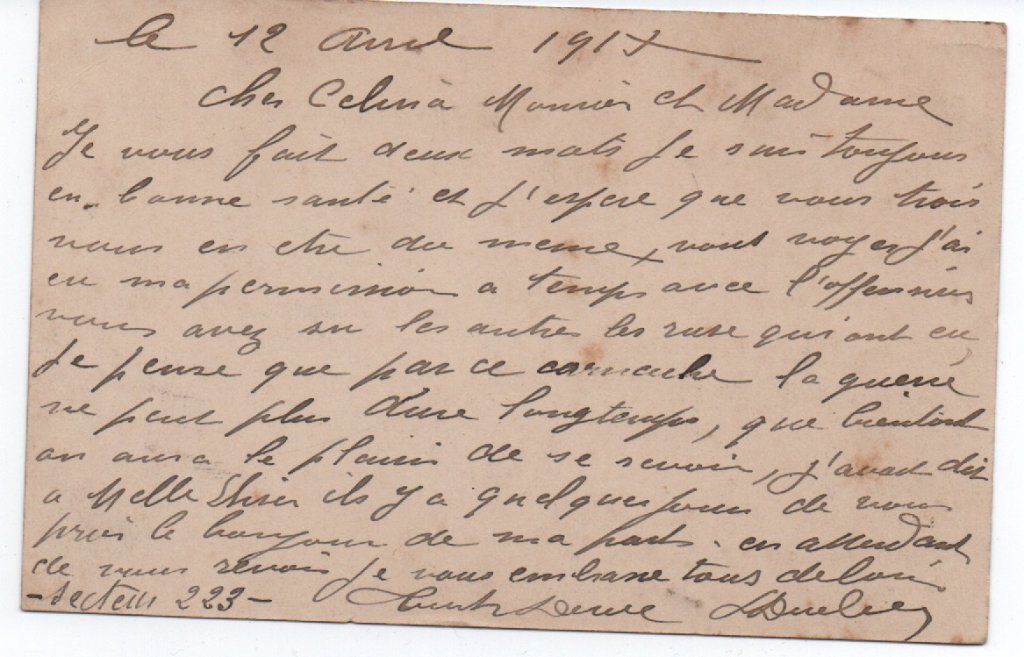 le 12 Avril 1917
Cher Celina Monsieur et Madame
Je vous fait deux mots Je suis toujours
en bonne santé et J'espere que vous trois
vous en etre du meme, vous voyez J'ai
eu ma permission a temps avec l'offensive
vous avez su les autres les ruse qui ont eu,
Je pense que par ce la guerre
ne peut plus dure longtemps, que bientot
on aura le plaisir de se revoir, j'avait dit
a Melle ils y a quelques jours de vous
le bonjour de ma parts. en attendant
de vous revoir Je vous embrasse tous de loin
- Secteur 223 -